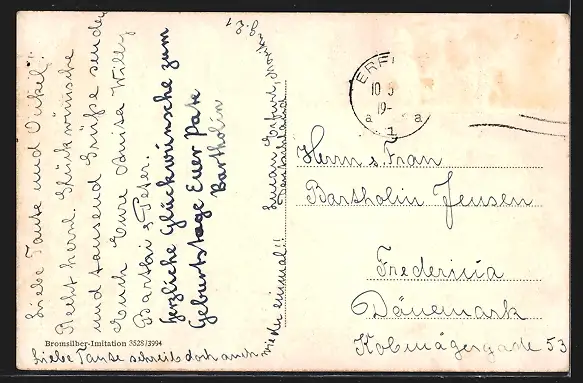 Liebe Tante und Onkel!
Recht herzl. Glückwünsche
und tausend Grüße senden
Euch Eure Luisa Willy
Bartbai & Peter.
Herzliche Glückwünsche zum
Geburtstage Euer Pate
Bartholin
Liebe Tante schreib doch auch
wieder einmal!!
Erfurt,
Deutschland
Bromsilber-Imitation 3528/3994
ERF
10 3
19-
a a
1
Herrn & Frau
Bartholin Jensen
Fredericia
Dänemark
Kobmagergade 53